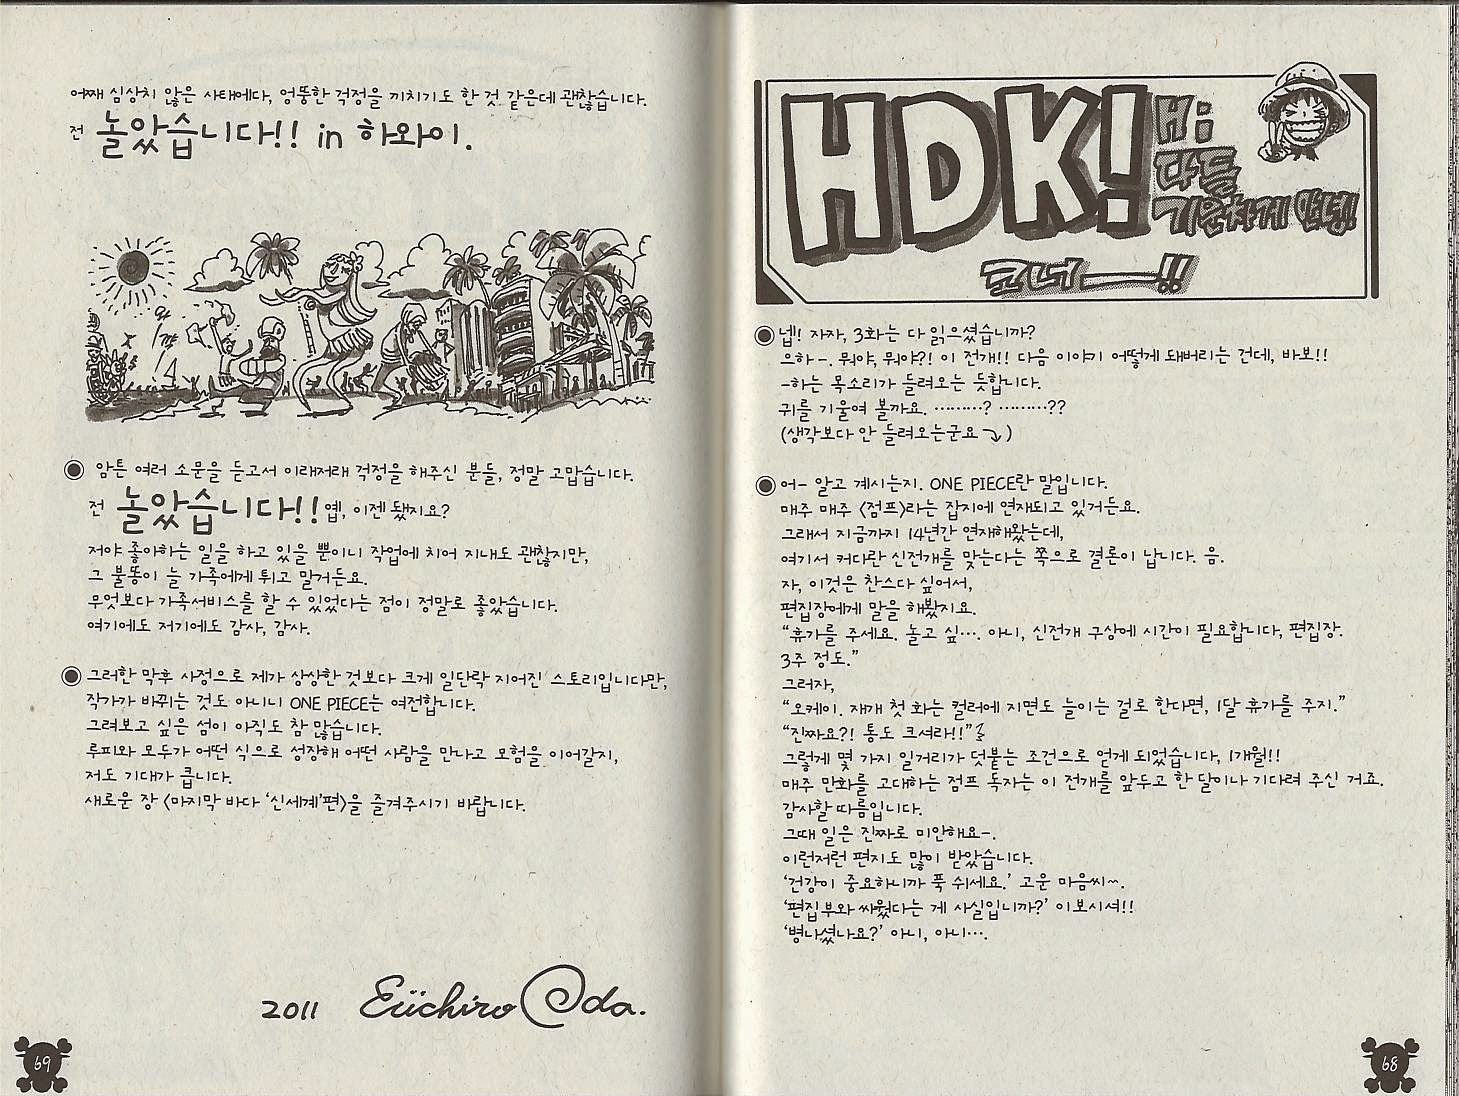 HDK!
Hi
다들
기운차게 안녕!
코너——!!
◉넵! 자자, 3화는 다 읽으셨습니까?
으하-. 뭐야, 뭐야?! 이 전개!! 다음 이야기 어떻게 돼버리는 건데, 바보!!
-하는 목소리가 들려오는 듯합니다.
귀를 기울여 볼까요. ………? ………??
(생각보다 안 들려오는군요⤵)
◉어- 알고 계시는지. ONE PIECE란 말입니다.
매주 매주 〈점프〉라는 잡지에 연재되고 있거든요.
그래서 지금까지 14년간 연재해왔는데,
여기서 커다란 신전개를 맞는다는 쪽으로 결론이 납니다. 음.
자, 이것은 찬스다 싶어서,
편집장에게 말을 해봤지요.
“휴가를 주세요. 놀고 싶…. 아니, 신전개 구상에 시간이 필요합니다, 편집장.
3주 정도.”
그러자,
“오케이. 재개 첫 화는 컬러에 지면도 늘이는 걸로 한다면, 1달 휴가를 주지.”
“진짜요?! 통도 크셔라!!”
그렇게 몇 가지 일거리가 덧붙는 조건으로 얻게 되었습니다, 1개월!!
매주 만화를 고대하는 점프 독자는 이 전개를 앞두고 한 달이나 기다려 주신 거죠.
감사할 따름입니다.
그때 일은 진짜로 미안해요-.
이런저런 편지도 많이 받았습니다.
‘건강이 중요하니까 푹 쉬세요.’ 고운 마음씨~.
‘편집부와 싸웠다는 게 사실입니까?’ 이보시셔!!
‘병나셨나요?’ 아니, 아니….
68
어째 심상치 않은 사태에다, 엉뚱한 걱정을 끼치기도 한 것 같은데 괜찮습니다.
전 놀았습니다!! in 하와이.
◉암튼 여러 소문을 듣고서 이래저래 걱정을 해주신 분들, 정말 고맙습니다.
전 놀았습니다!! 옙, 이젠 됐지요?
저야 좋아하는 일을 하고 있을 뿐이니 작업에 치어 지내도 괜찮지만,
그 불똥이 늘 가족에게 튀고 말거든요.
무엇보다 가족서비스를 할 수 있었다는 점이 정말로 좋았습니다.
여기에도 저기에도 감사, 감사.
◉그러한 막후 사정으로 제가 상상한 것보다 크게 일단락 지어진 스토리입니다만,
작가가 바뀌는 것도 아니니 ONE PIECE는 여전합니다.
그려보고 싶은 섬이 아직도 참 많습니다.
루피와 모두가 어떤 식으로 성장해 어떤 사람을 만나고 모험을 이어갈지,
저도 기대가 큽니다.
새로운 장 〈마지막 바다 ‘신세계’편〉을 즐겨주시기 바랍니다.
2011 Eiichiro Oda.
69